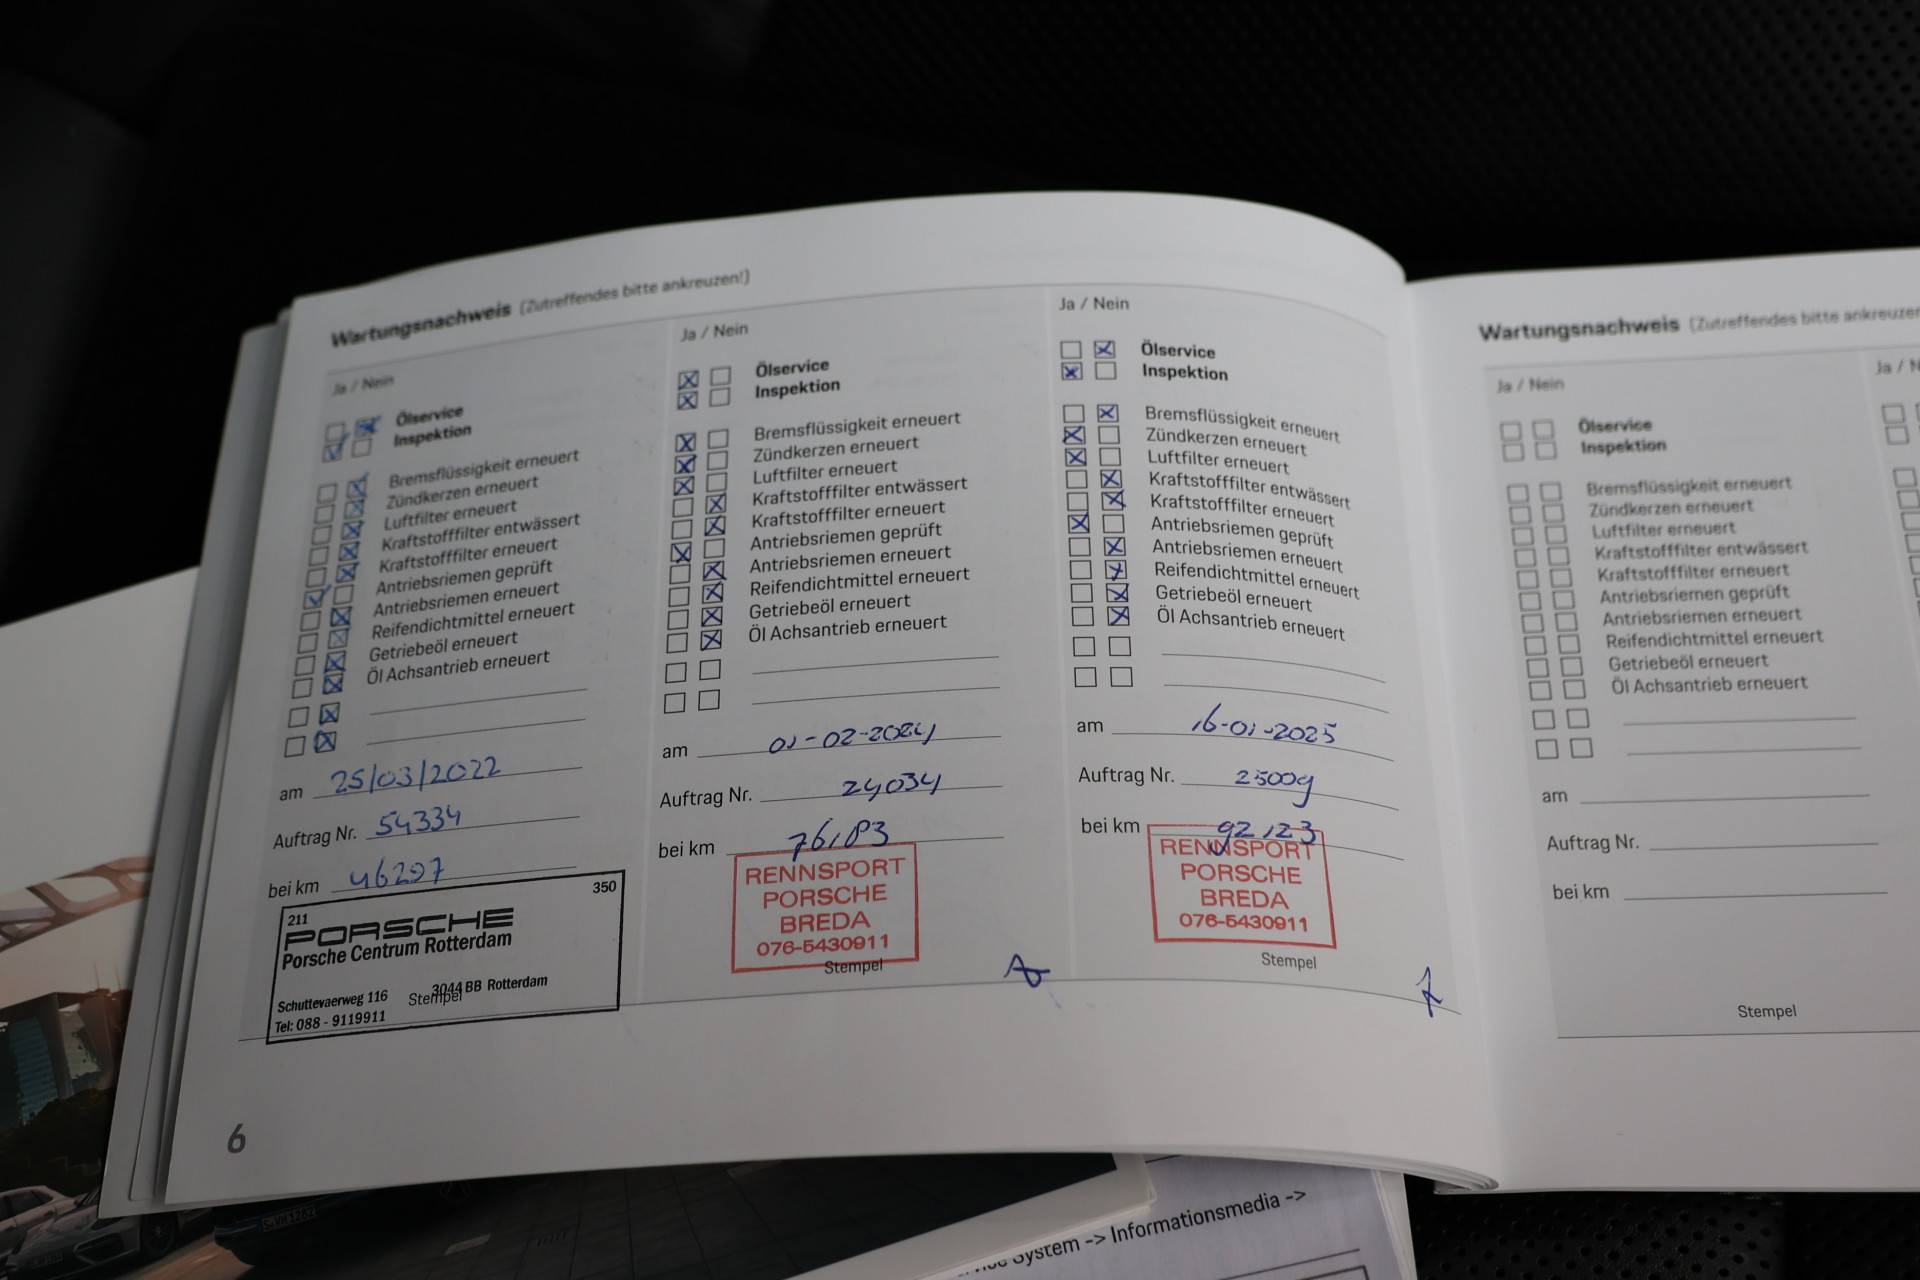 Wartungsnachweis (Zutreffendes bitte ankreuzen!)
Ja / Nein
Ölservice
Inspektion
Bremsflüssigkeit erneuert
Zündkerzen erneuert
Luftfilter erneuert
Kraftstofffilter entwässert
Kraftstofffilter erneuert
Antriebsriemen geprüft
Antriebsriemen erneuert
Reifendichtmittel erneuert
Getriebeöl erneuert
Öl Achsantrieb erneuert
am 25/03/2022
Auftrag Nr. 54334
bei km 46297
211 350
PORSCHE
Porsche Centrum Rotterdam
Schuttevaerweg 116 3044 BB Rotterdam
Stempel
Tel: 088 - 9119911
Ja / Nein
Ölservice
Inspektion
Bremsflüssigkeit erneuert
Zündkerzen erneuert
Luftfilter erneuert
Kraftstofffilter entwässert
Kraftstofffilter erneuert
Antriebsriemen geprüft
Antriebsriemen erneuert
Reifendichtmittel erneuert
Getriebeöl erneuert
Öl Achsantrieb erneuert
am 01-02-2024
Auftrag Nr. 24034
bei km 76183
RENNSPORT
PORSCHE
BREDA
076-5430911
Stempel
Ja / Nein
Ölservice
Inspektion
Bremsflüssigkeit erneuert
Zündkerzen erneuert
Luftfilter erneuert
Kraftstofffilter entwässert
Kraftstofffilter erneuert
Antriebsriemen geprüft
Antriebsriemen erneuert
Reifendichtmittel erneuert
Getriebeöl erneuert
Öl Achsantrieb erneuert
am 16-01-2025
Auftrag Nr. 25009
bei km 92123
RENNSPORT
PORSCHE
BREDA
076-5430911
Stempel
6
Wartungsnachweis (Zutreffendes bitte
Ja / Nein
Ölservice
Inspektion
Bremsflüssigkeit erneuert
Zündkerzen erneuert
Luftfilter erneuert
Kraftstofffilter entwässert
Kraftstofffilter erneuert
Antriebsriemen geprüft
Antriebsriemen erneuert
Reifendichtmittel erneuert
Getriebeöl erneuert
Öl Achsantrieb erneuert
am
Auftrag Nr.
bei km
Stempel
Ja /
System -> Informationsmedia ->